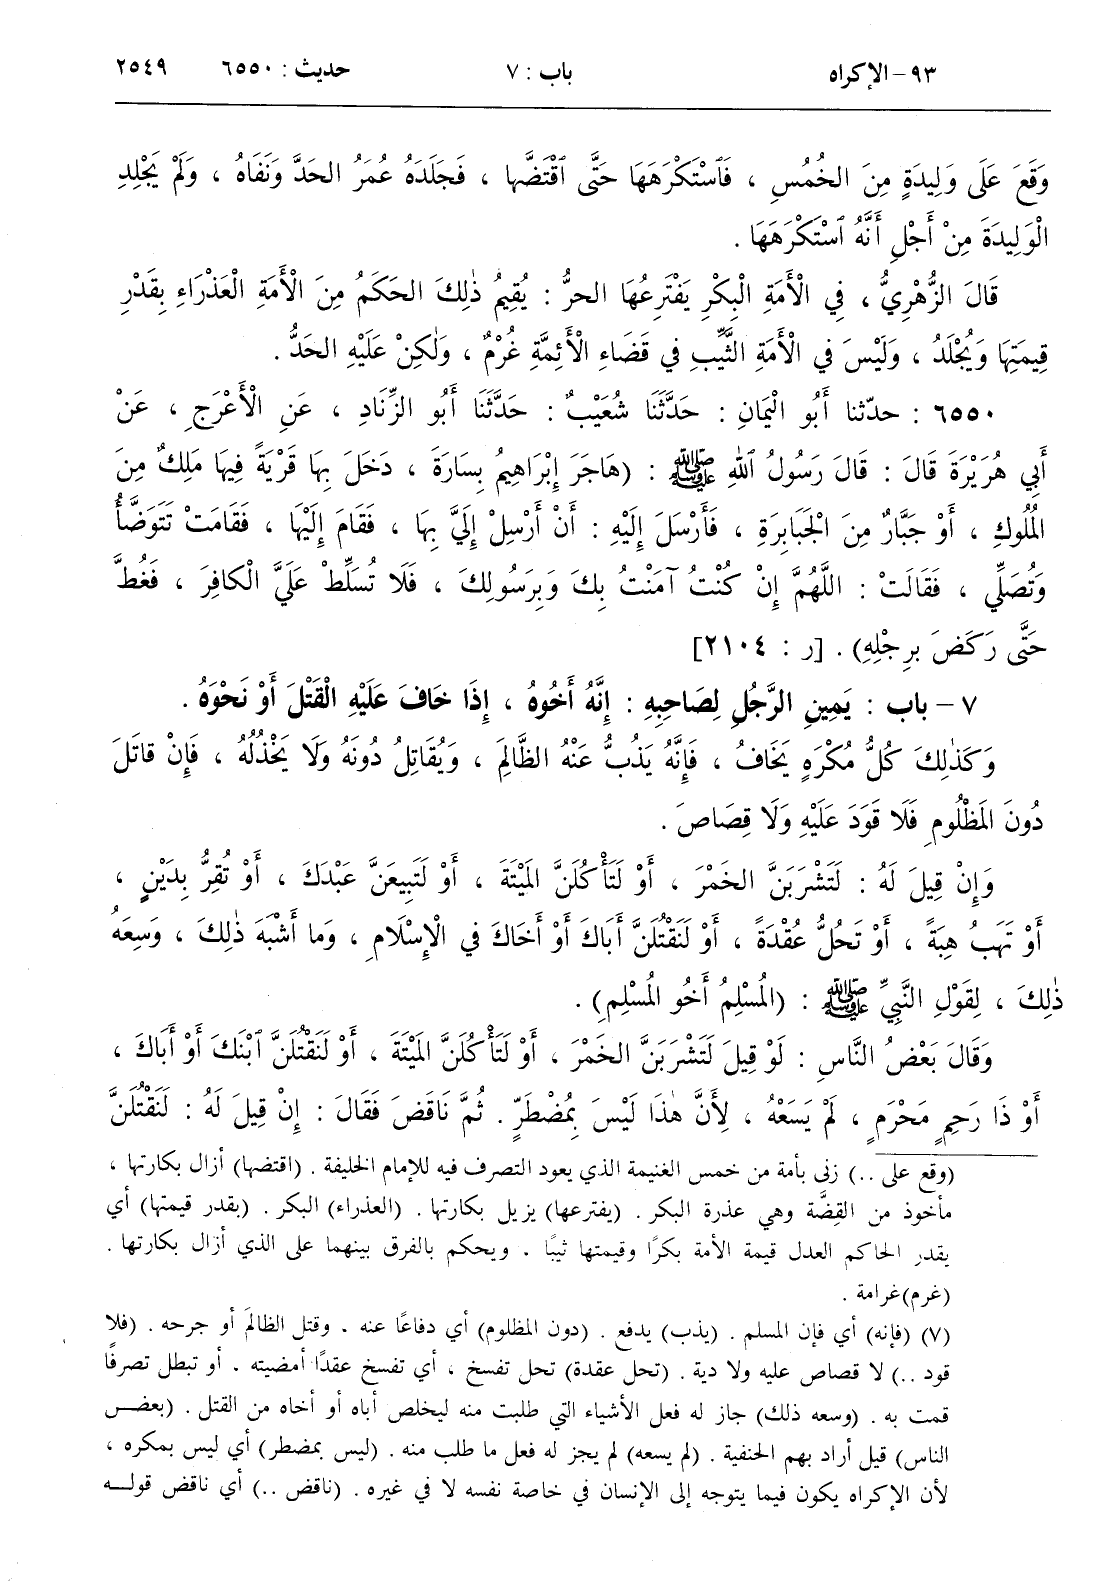 ٩٣ – الإكراه باب : ٧ حديث : ٦٥٥٠ ٢٥٤٩
وَقَعَ عَلَى وَلِيدَةٍ مِنَ الخُمُسِ ، فَٱسْتَكْرَهَهَا حَتَّى ٱقْتَضَّها ، فَجَلَدَهُ عُمَرُ الحَدَّ وَنَفَاهُ ، وَلَمْ يَجْلِدِ
الْوَلِيدَةَ مِنْ أَجْلِ أَنَّهُ ٱسْتَكْرَهَهَا .
قَالَ الزُّهْرِيُّ ، فِي الْأَمَةِ الْبِكْرِ يَفْتَرِعُهَا الحرُّ : يُقِيمُ ذٰلِكَ الحَكَمُ مِنَ الْأَمَةِ الْعَذْرَاءِ بِقَدْرِ
قِيمَتِهَا وَيُجْلَدُ ، وَلَيْسَ فِي الْأَمَةِ الثَّيِّبِ فِي قَضَاءِ الْأَئِمَّةِ غُرْمٌ ، وَلٰكِنْ عَلَيْهِ الحَدُّ .
٦٥٥٠ : حدّثنا أَبُو الْيَمَانِ : حَدَّثَنَا شُعَيْبٌ : حَدَّثَنَا أَبُو الزِّنَادِ ، عَنِ الْأَعْرَجِ ، عَنْ
أَبِي هُرَيْرَةَ قَالَ : قَالَ رَسُولُ ٱللهِ ﷺ : (هَاجَرَ إِبْرَاهِيمُ بِسَارَةَ ، دَخَلَ بِهَا قَرْيَةً فِيهَا مَلِكٌ مِنَ
الْمُلُوكِ ، أَوْ جَبَّارٌ مِنَ الْجَبَابِرَةِ ، فَأَرْسَلَ إِلَيْهِ : أَنْ أَرْسِلْ إِلَيَّ بِهَا ، فَقَامَ إِلَيْهَا ، فَقَامَتْ تَتَوَضَّأُ
وَتُصَلِّي ، فَقَالَتْ : اللَّهُمَّ إِنْ كُنْتُ آمَنْتُ بِكَ وَبِرَسُولِكَ ، فَلَا تُسَلِّطْ عَلَيَّ الْكافِرَ ، فَغُطَّ
حَتَّى رَكَضَ بِرِجْلِهِ) . [ر : ٢١٠٤]
٧ – باب : يَمِينِ الرَّجُلِ لِصَاحِبِهِ : إِنَّهُ أَخُوهُ ، إِذَا خافَ عَلَيْهِ الْقَتْلَ أَوْ نَحْوَهُ .
وَكَذٰلِكَ كُلُّ مُكْرَهٍ يَخَافُ ، فَإِنَّهُ يَذُبُّ عَنْهُ الظَّالِمَ ، وَيُقَاتِلُ دُونَهُ وَلَا يَخْذُلُهُ ، فَإِنْ قاتَلَ
دُونَ المَظْلُومِ فَلَا قَوَدَ عَلَيْهِ وَلَا قِصَاصَ .
وَإِنْ قِيلَ لَهُ : لَتَشْرَبَنَّ الخَمْرَ ، أَوْ لَتَأْكُلَنَّ المَيْتَةَ ، أَوْ لَتَبِيعَنَّ عَبْدَكَ ، أَوْ تُقِرُّ بِدَيْنٍ ،
أَوْ تَهَبُ هِبَةً ، أَوْ تَحُلُّ عُقْدَةً ، أَوْ لَنَقْتُلَنَّ أَبَاكَ أَوْ أَخَاكَ فِي الْإِسْلَامِ ، وَما أَشْبَهَ ذٰلِكَ ، وَسِعَهُ
ذٰلِكَ ، لِقَوْلِ النَّبِيِّ ﷺ : (المُسْلِمُ أَخُو المُسْلِمِ) .
وَقَالَ بَعْضُ النَّاسِ : لَوْ قِيلَ لَتَشْرَبَنَّ الخَمْرَ ، أَوْ لَتَأْكُلَنَّ المَيْتَةَ ، أَوْ لَنَقْتُلَنَّ ٱبْنَكَ أَوْ أَبَاكَ ،
أَوْ ذَا رَحِمٍ مَحْرَمٍ ، لَمْ يَسَعْهُ ، لِأَنَّ هٰذَا لَيْسَ بِمُضْطَرٍّ . ثُمَّ نَاقَضَ فَقَالَ : إِنْ قِيلَ لَهُ : لَنَقْتُلَنَّ
(وقع على ..) زنى بأمة من خمس الغنيمة الذي يعود التصرف فيه للإمام الخليفة . (اقتضها) أزال بكارتها ،
مأخوذ من القِضَّة وهي عذرة البكر . (يفترعها) يزيل بكارتها . (العذراء) البكر . (بقدر قيمتها) أي
يقدر الحاكم العدل قيمة الأمة بكرًا وقيمتها ثيبًا . ويحكم بالفرق بينهما على الذي أزال بكارتها .
(غرم)غرامة .
(٧) (فإنه) أي فإن المسلم . (يذب) يدفع . (دون المظلوم) أي دفاعًا عنه . وقتل الظالمَ أو جرحه . (فلا
قود ..) لا قصاص عليه ولا دية . (تحل عقدة) تحل تفسخ ، أي تفسخ عقدًا أمضيته . أو تبطل تصرفًا
قمت به . (وسعه ذلك) جاز له فعل الأشياء التي طلبت منه ليخلص أباه أو أخاه من القتل . (بعض
الناس) قيل أراد بهم الحنفية . (لم يسعه) لم يجز له فعل ما طلب منه . (ليس بمضطر) أي ليس بمكره ،
لأن الإكراه يكون فيما يتوجه إلى الإنسان في خاصة نفسه لا في غيره . (ناقض ..) أي ناقض قولـه